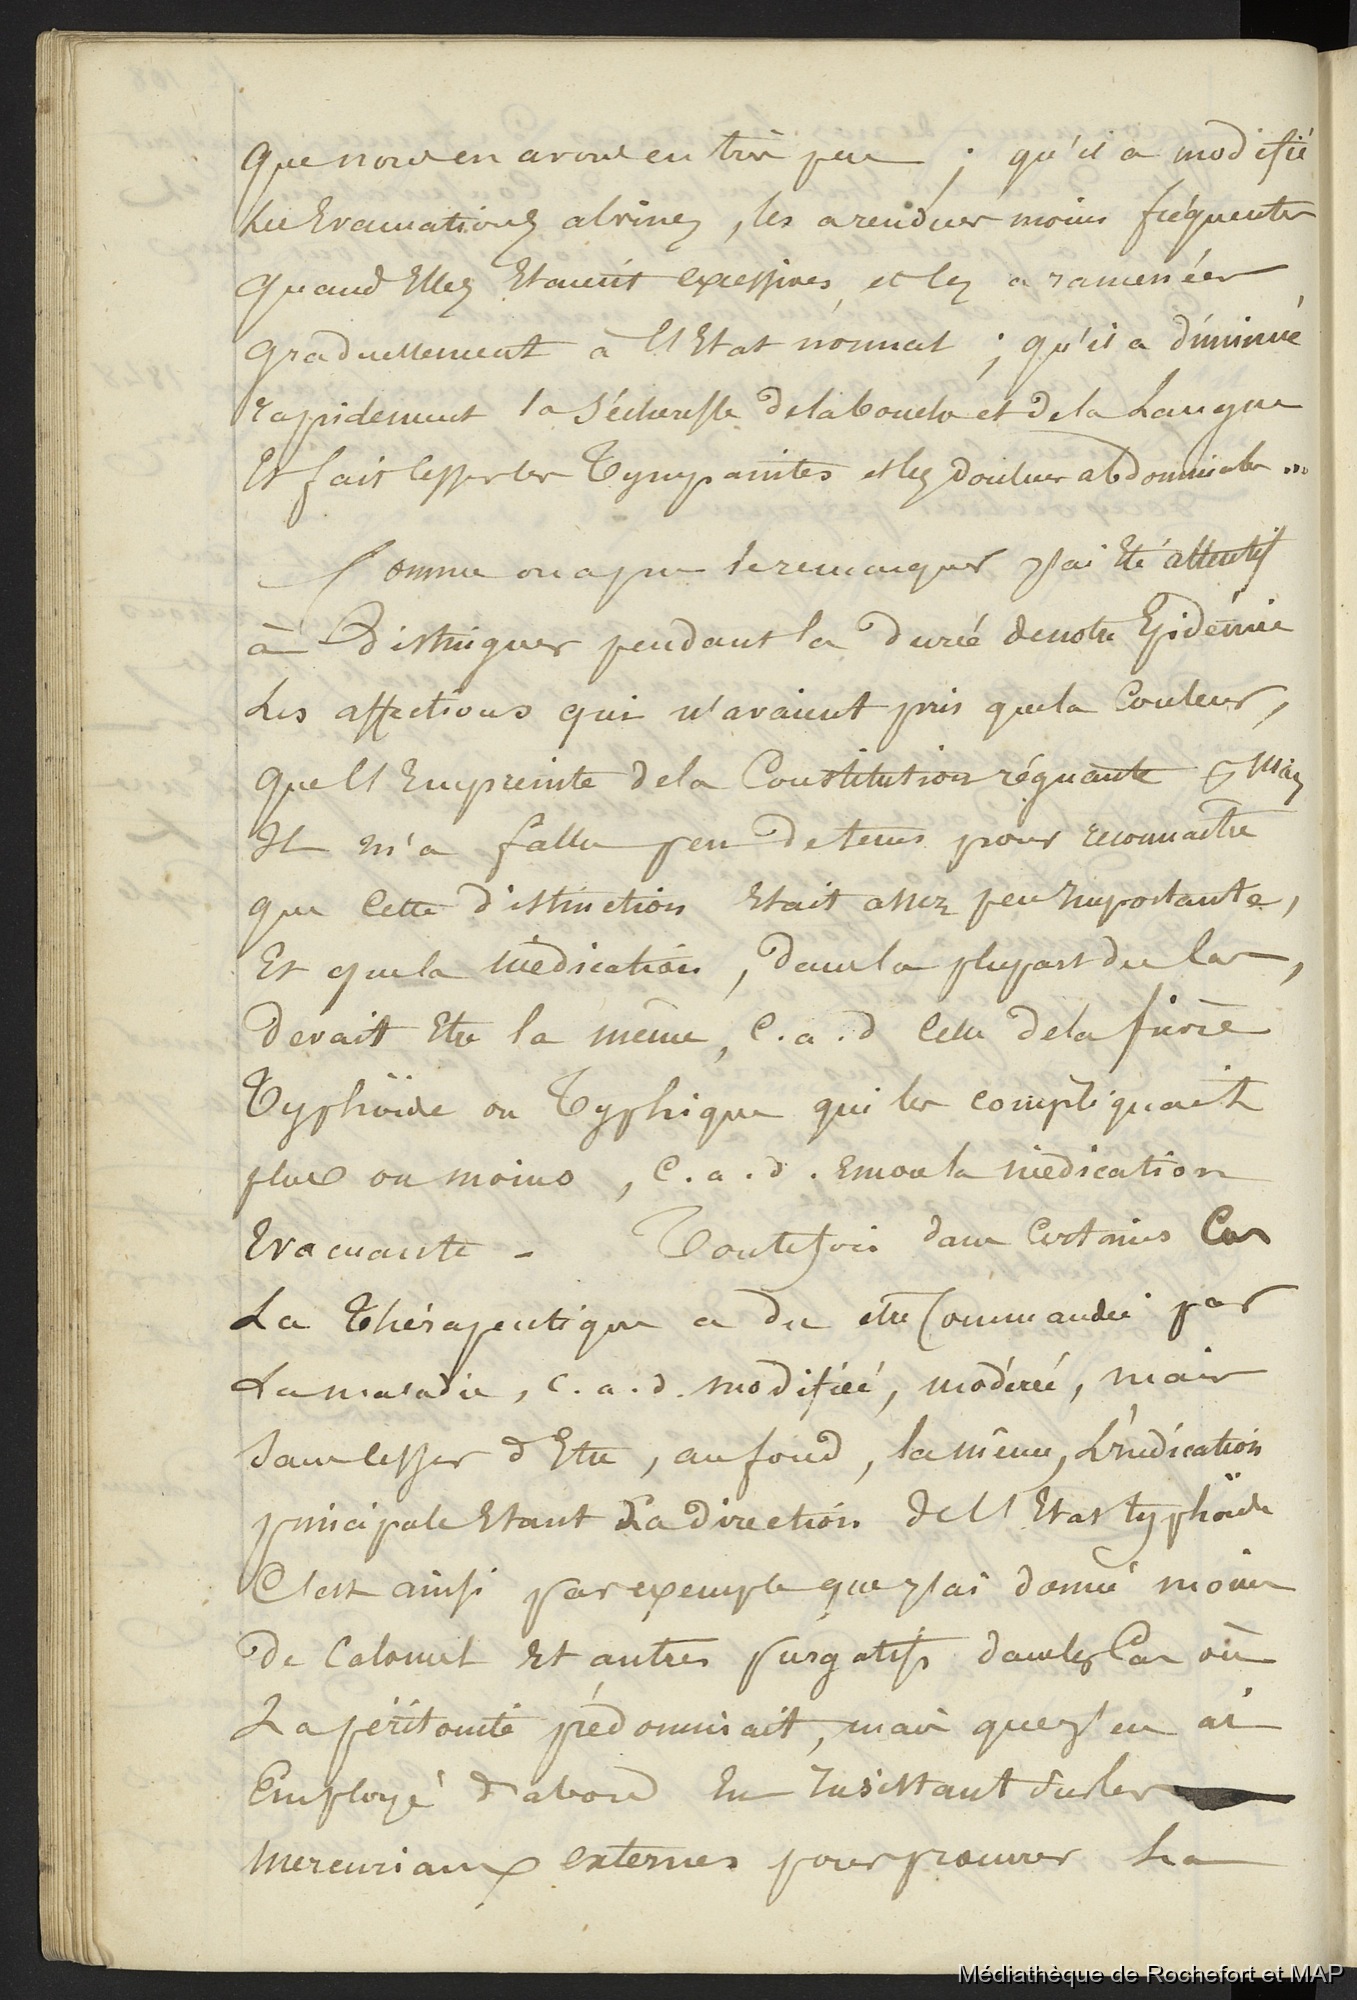 que nous en avons eu très peu ; qu'il a modifié
les Evacuations alvines, les a rendues moins fréquentes
quand Elles Etaient excessives, et les a ramenées
graduellement à l'Etat normal ; qu'il a diminué
rapidement la sécheresse de la bouche et de la Langue
Et fait cesser les Tympanites et les douleurs abdominales ...
Comme on a pu le remarquer j'ai Eté attentif
à distinguer pendant la durée de notre Epidémie
Les affections qui n'avaient pris que la Couleur,
que l'Empreinte de la Constitution régnante ; Mais
Il m'a fallu peu de tems pour reconnaître
que Cette distinction Etait assez peu Importante,
Et que la médication, dans la plupart des Cas,
devait Etre la même, C.a.d Celle de la fièvre
Typhöide ou Typhique qui les compliquait
plus ou moins, C.a.d. la médication
Evacuante - Toutefois dans Certains Cas
La Thérapeutique a du etre Commandée par
La maladie, C.a.d. modifiée, modérée, mais
sans cesser d'Etre, au fond, la même, L'Indication
principale Etant La direction de l'Etat typhöide
C'est ainsi par exemple que j'ai donné moins
de Calomel Et autres purgatifs dans les Cas où
La péritonite prédominait, mais que j'en ai
Employé d'abord En Insistant sur les
mercuriaux externes pour La
Médiathèque de Rochefort et MAP